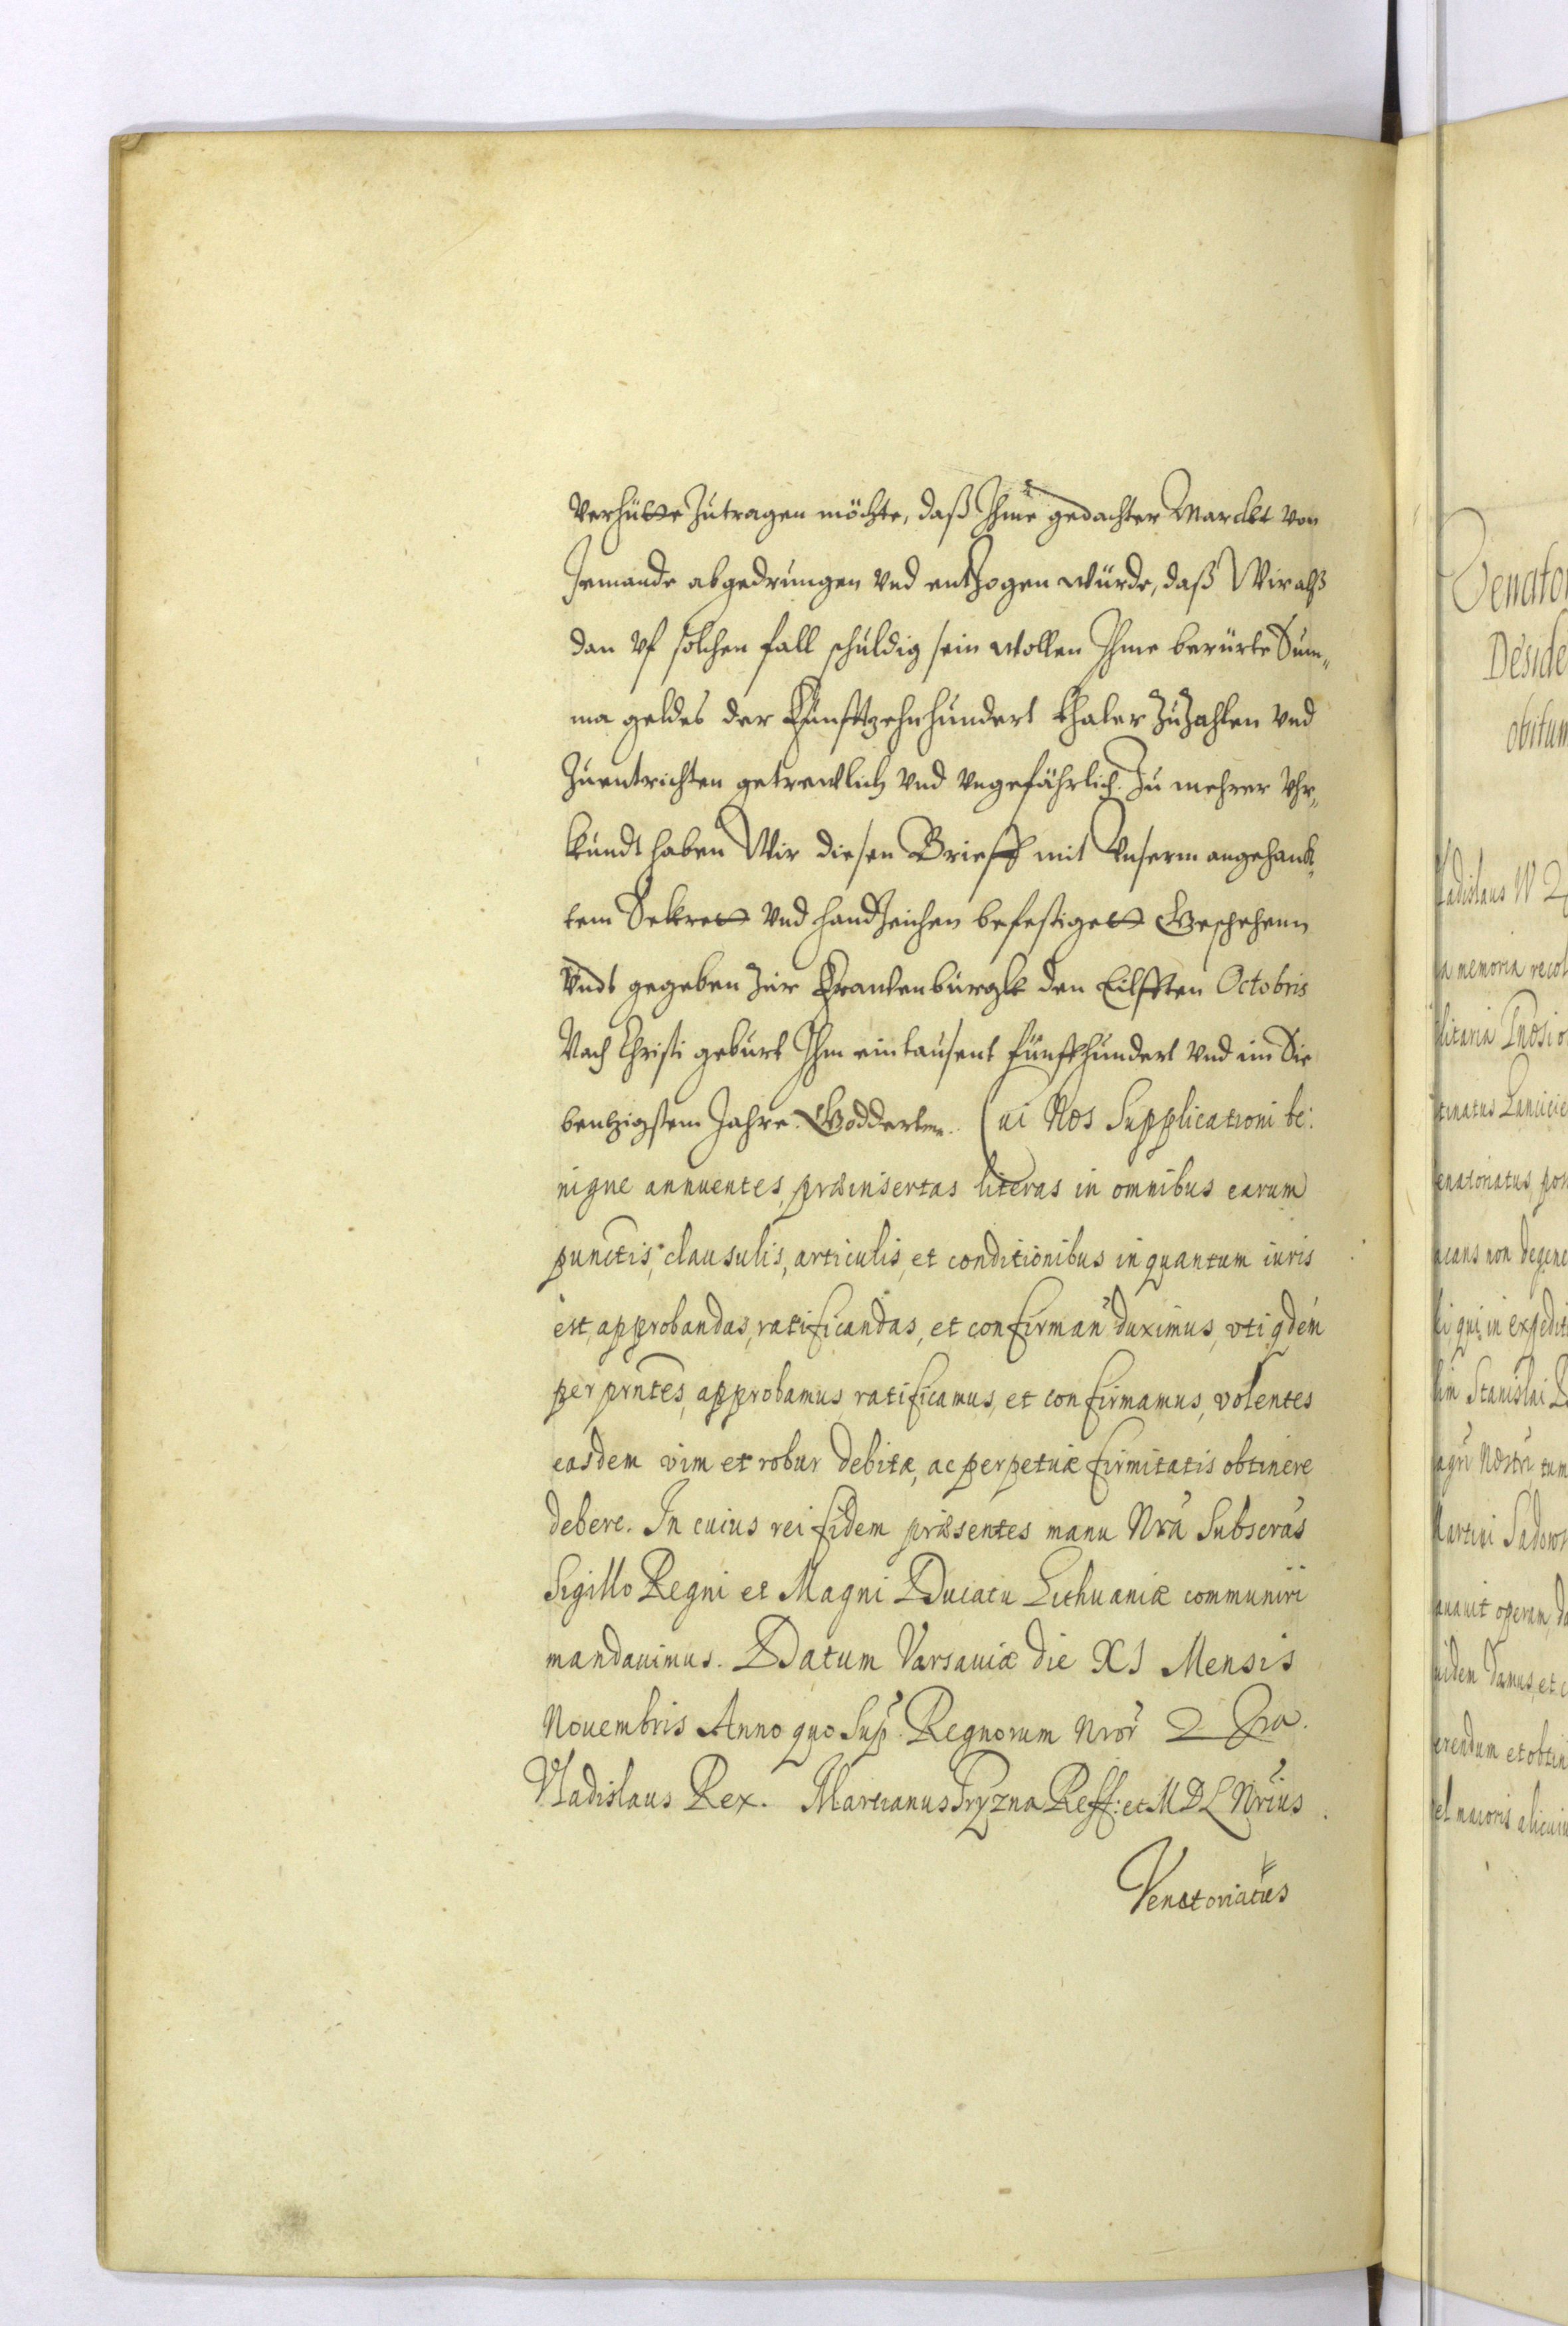 verhütte zutragen möchte, daß Ihme gedachter Marckt von
Jemande abgedrungen vnd entzogen würde, daß Wir alß
dan vf solchen fall schuldig sein wollen Ihme berürte Sum„
ma geldes der Fünfftzehnhundert thaler zuzahlen vnd
Zuentrichten getrewlich vnd vngefährlich. Zu mehrer Vhr„
kundt haben Wir diesen Brieff mit Vnserm angehank„
tem Sekrett vnd handtzeichen befestigett Geschehenn
Vndt gegeben zur Frankenburgk den Eilfften Octobris
Nach Christi geburt Ihm eintausent fünffhundert vnd im Sie
bentzigstem Jahre. Cui Nos Supplicationi be:
nigne annuentes, præinsertas literas in omnibus earum
punctis, clausulis, articulis, et conditionibus in quantum iuris
est, approbandas, ratificandas, et confirman duximus, vti qdem
per pnntes, approbamus ratificamus, et confirmamus, volentes
easdem vim et robur debitæ, ac perpetuæ firmitatis obtinere
debere. In cuius rei fidem præsentes manu Nra Subscras
Sigillo Regni et Magni Ducatu Lithuaniæ communiri
mandauimus. Datum Varsauiæ die XI Mensis
Nouembris Anno quo Sup. Regnorum Nror
Vladislaus Rex. Martianus Tryzna Reff: et M D L Nrius
Venatoriatus
Venator
Deside
obitum
ladislaus
a memoria recol
litaria
tinatus Lancicie
enatoriatus, pos
acans non degene
li qui in expedit
lin Stanislai
agri Nostri tum
Martini Sadows
auauit operam, da
uidem Damus, et c
erendum et obtin
el maioris alicuiu